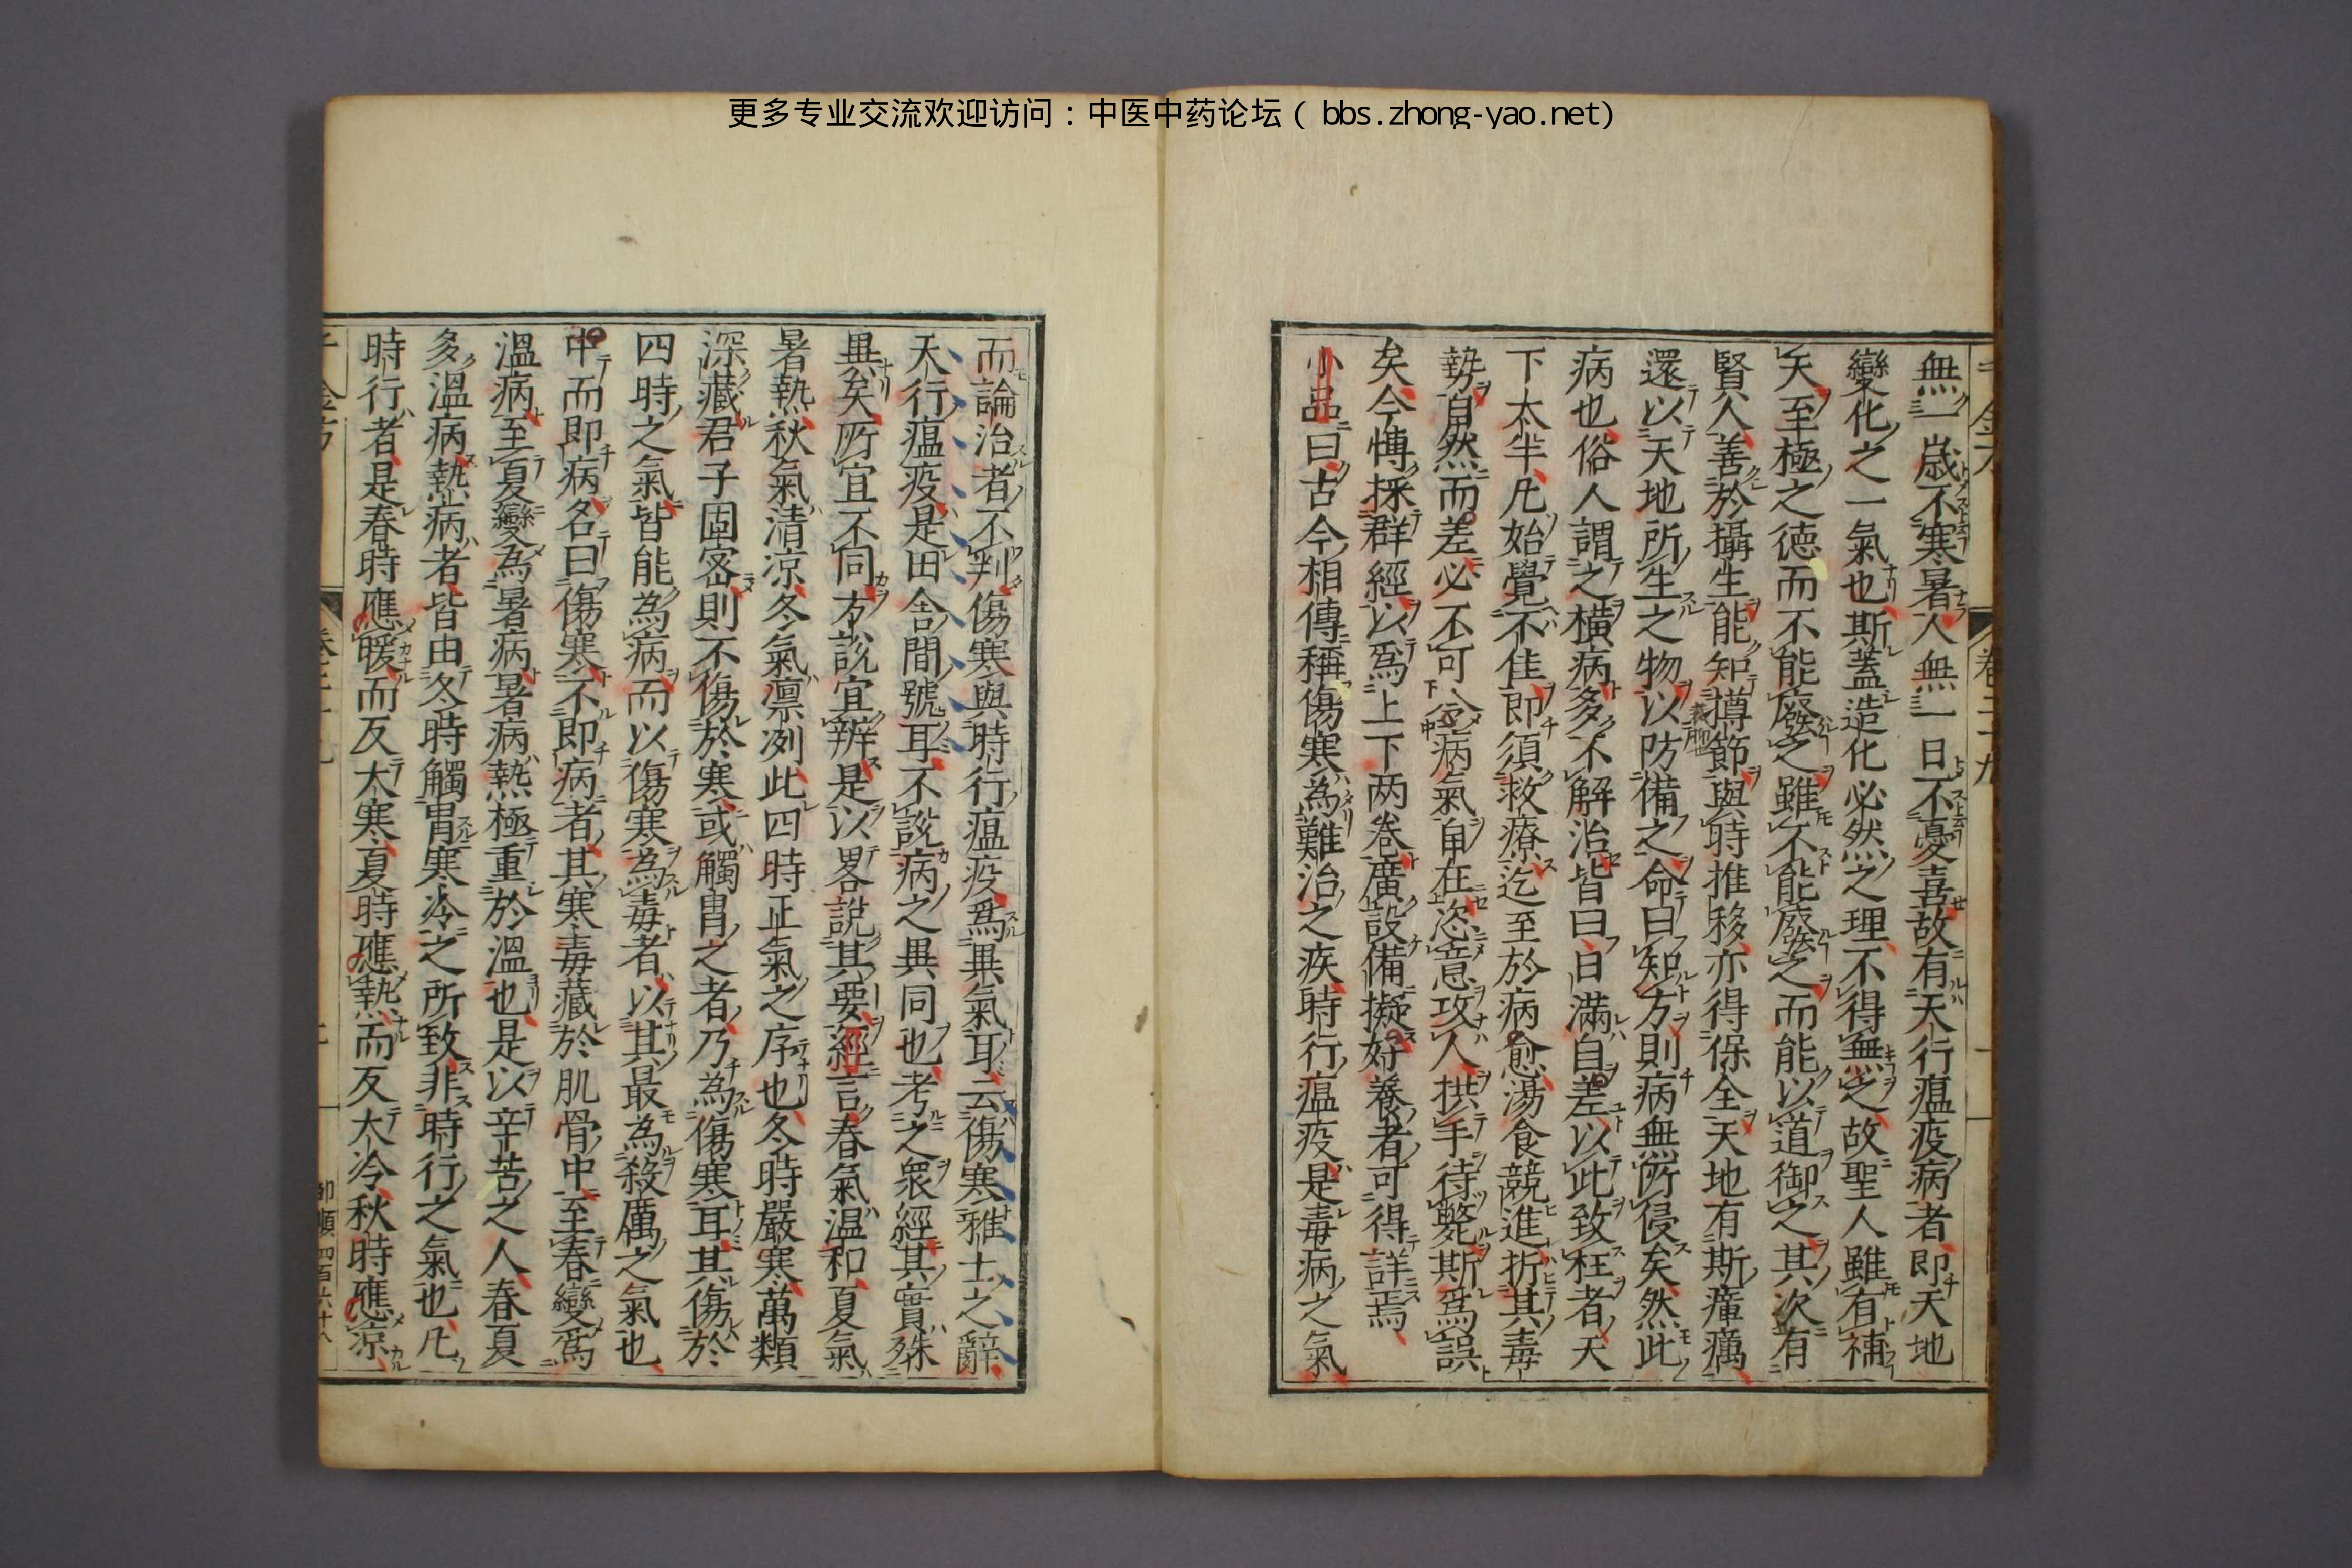 更多专业交流欢迎访问：中医中药论坛（bbs.zhong-yao.net）
無一歳不寒暑人無一日不憂喜故有天行瘟疫病者即天地
變化之一氣也斯蓋造化必然之理不得無之故聖人雖有補
天至極之徳而不能廢之雖不能廢之而能以道御之其次有
賢人善於攝生能知撙節與時推移亦得保全天地有斯瘴癘
還以天地所生之物以防備之命曰知方則病無所侵矣然此
病也俗人謂之横病多不解治皆曰日滿自差以此致枉者天
下太半凡始覺不佳即須救療迄至於病愈湯食競進折其毒
勢自然而差必不可令病氣自在恣意攻人拱手待斃斯爲誤
矣今博採群經以爲上下两巻廣設備擬好養者可得詳焉
小品曰古今相傳稱傷寒為難治之疾時行瘟疫是毒病之氣
而論治者不判傷寒與時行瘟疫爲異氣耳云傷寒雅士之辭
天行瘟疫是田舎間號耳不説病之異同也考之衆經其實殊
異矣所宜不同方説宜辨是以畧説其要經言春氣温和夏氣
暑熱秋氣清凉冬氣凛冽此四時正氣之序也冬時嚴寒萬類
深藏君子固密則不傷於寒或觸冒之者乃為傷寒耳其傷於
四時之氣皆能為病而以傷寒為毒者以其最為殺厲之氣也
中而即病名曰傷寒不即病者其寒毒藏於肌骨中至春變爲
溫病至夏變為暑病暑病熱極重於溫也是以辛苦之人春夏
多溫病熱病者皆由冬時觸冒寒冷之所致非時行之氣也凡
時行者是春時應暖而反大寒夏時應熱而反大冷秋時應凉